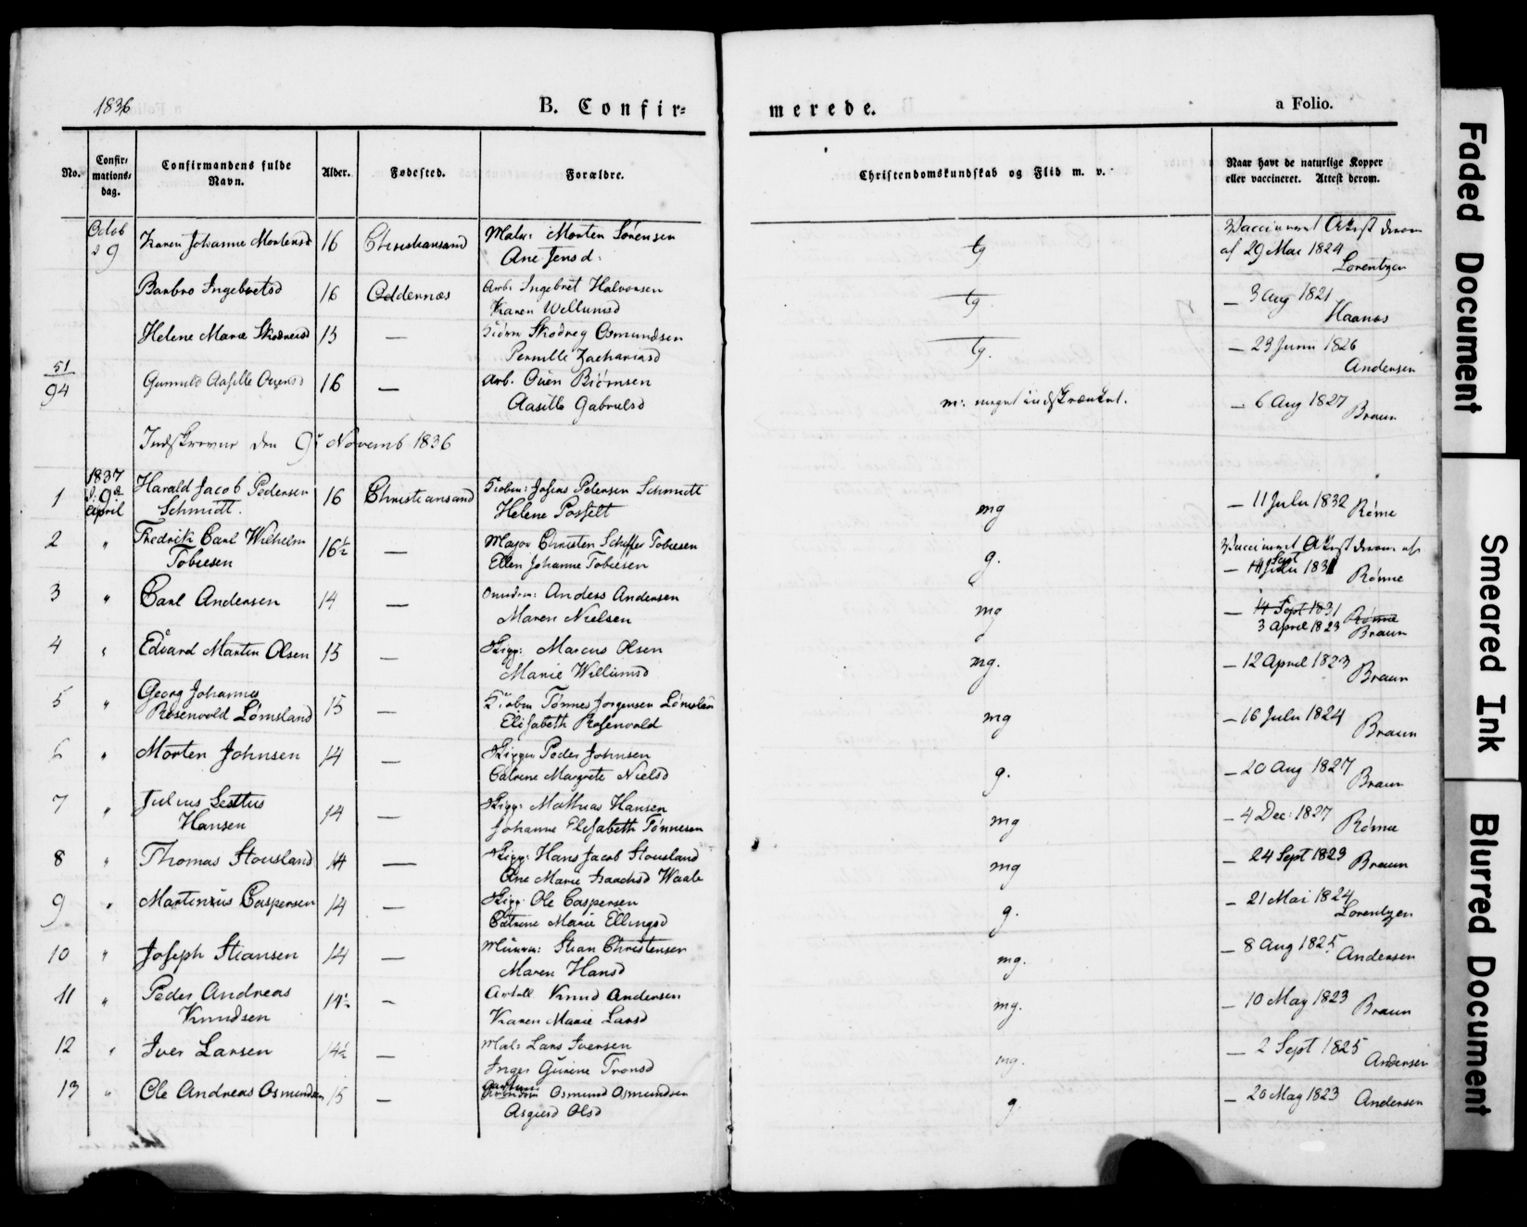 1836
B. Confir-
merede.
a Folio.
No.
Confir-
mations-
dag.
Confirmandens fulde
Navn.
Alder.
Fødested.
Forældre.
Christendomskundskab og Flid m. v.
Naar havt de naturlige Kopper
eller vaccineret. Attest derom.
Octob
d 9
Karen Johanne Mortensd
16
Christiansand
Morten Sørensen
Ane Jensd.
tg
Vaccineret Attest derom
af 29 Mai 1824
Lorentzen
Barbro Ingebretsd
16
Oddernæs
Arb: Ingebret Halvorsen
Karen Wellumsd
tg
— 3 Aug 1821
Haanæs
Helene Marie
15
—
Osmundsen
Pernille Zachariasd
tg.
— 23 Juni 1826
Andersen
51
94
16
—
Arb. Ouen Biörnsen
Aasille Gabrielsd
m: meget indskrænket.
— 6 Aug 1827
Braun
Indskrevne den 9 Novemb 1836
1
1837
d. 9de
April
Harald Jacob Pedersen
Schmidt.
16
Christiansand
Petersen Schmidt
Helene Posselt
mg
— 11 Julii 1832
Rönne
2
"
Fredrik Carl Wilhelm
Tobiesen
16½
—
Major Christen Tobiesen
Ellen Johanne Tobiesen
g.
Vaccineret Attest derom af
Sept
— 14 1831
Rönne
3
"
Carl Andersen
14
—
Anders Andersen
Maren Nielsen
mg
— 14 Sept 1831 Rönne
3 April 1823
Braun
4
"
Edvard Martin Olsen
15
—
Skipp: Marcus Olsen
Marie Willumsd
mg.
— 12 April 1823
Braun
5
"
Georg Johannes
Rosenvold Lömsland
15
—
Tønnes Jørgensen
Elisabeth Rosenvold
mg
— 16 Julii 1824
Braun
6
"
Morten Johnsen
14
—
Skipper Peder Johnsen
Catrine Margrete Nielsd
g.
— 20 Aug 1827
Braun
7
"
Julius
Hansen
14
—
Skipp: Mathias Hansen
Johanne Elisabeth Tönnesen
mg
— 4 Dec: 1827
Rönne
8
"
Thomas Stousland
14
—
Skipp: Hans Jacob Stousland
Ane Marie Isachsd Waale
mg
— 24 Sept 1823
Braun
9
"
Martinius Caspersen
14
—
Skipp: Ole Caspersen
Catrine Marie Ellingsd
g.
— 21 Mai 1824
Lorentzen
10
"
Joseph Stiansen
14
—
Stian Christensen
Maren Hansd
mg.
— 8 Aug 1825
Andersen
11
"
Peder Andreas
Knudsen
14½
—
Knud Andersen
Karen Marie Larsd
mg.
— 10 May 1823
Braun
12
"
Iver Larsen
14½
—
Lars Iversen
Inger Gurine Tronsd
mg.
— 2 Sept 1825
Andersen
13
"
Ole Andreas Osmundsen
15
—
Osmund Osmundsen
Asgierd Olsd
g.
— 20 May 1823
Andersen
Faded Document
Smeared Ink
Blurred Document